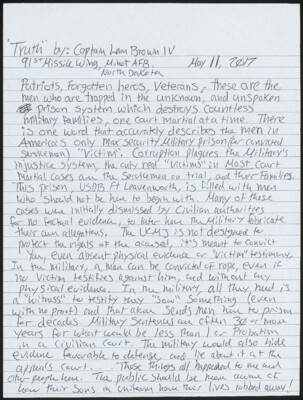 "Truth" by: Captain Leon Brown IV
91st Missile Wing, Minot AFB, May 11, 2017
North Dakota
Patriots, Forgotten heros, Veterans, these are the
men who are trapped in the unknown, and unspoken
prison system which destroys countless
military families, one court martial at a time. There
is one word that accurately describes the men in
America's only Max Security Military prison for convicted
servicemen: "Victim". Corruption plagues the Military's
injustice system, the only real "victims" in most Court
Martial cases are the Serviceman on trial, and their families.
This prison, USDB Ft Leavenworth, is filled with men
who should not be here to begin with. Many of these
cases were initially dismissed by Civilian authorities
for no factual evidence, to later have the Military fabricate
their own allegations. The UCMJ is not designed to
protect the rights of the accused, it's meant to convict
you, even absent physical evidence or "victim" testimony.
In the military, a man can be convicted of rape even if
no victim testifies against him, and without any
physical evidence. In the military, all they need is
a "witness" to testify they "saw" something (even
with no proof) and that alone sends men here to prison
for decades. Military sentences are often 30 or more
years for what would be less than 1 or Probation
in a Civilian court. The military would also hide
evidence favorable to defense, and lie about it at the
appeals court... These things all happened to me and
other people here. The public should be more aware of
how their sons in uniform have their lives robbed away!